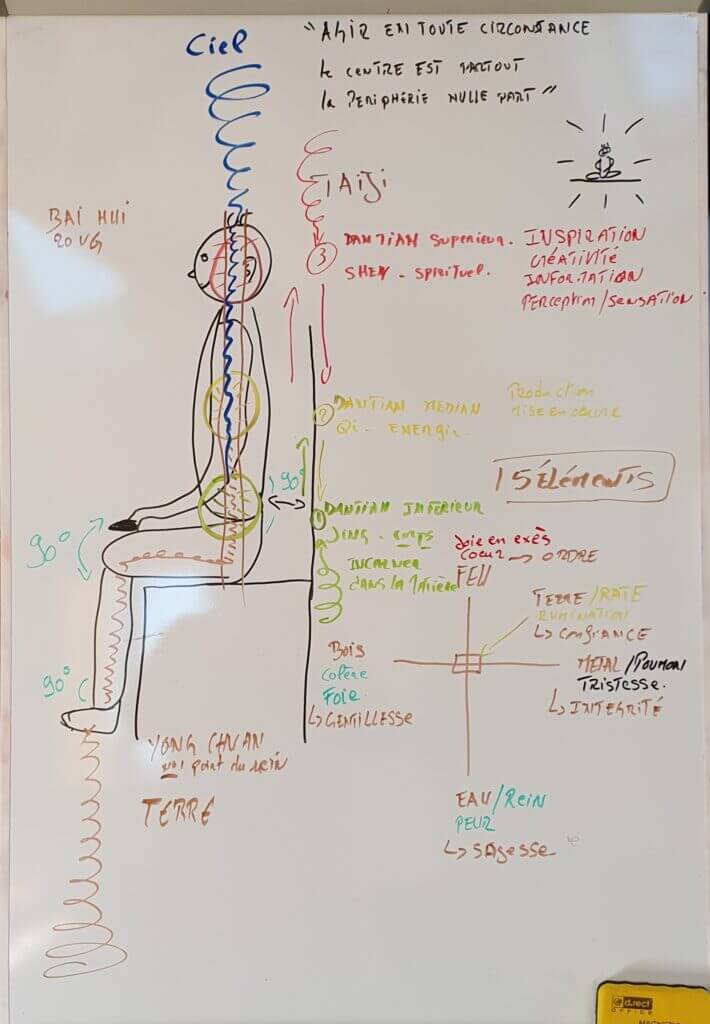 Ciel
"AGIR EN TOUTE CIRCONSTANCE
le CENTRE EST PARTOUT
la PERIPHERIE NULLE PART"
TAIJI
BAI HUI
20 VG
3 DANTIAN SUPERIEUR.
SHEN - SPIRITUEL.
INSPIRATION
CRÉATIVITÉ
INFORMATION
PERCEPTION/SENSATION
2 DANTIAN MEDIAN
QI - ENERGIE.
PRODUCTION
mise en oeuvre
90°
1 DANTIAN INFERIEUR
JING - CORPS
INCARNER
dans la Matière
90°
90°
15 Éléments
Joie en exès
Coeur → ORDRE
FEU
TERRE/RATE
RUMINATION
↳ CONFIANCE
BOIS
Colère
FOIE
↳ GENTILLESSE
METAL/POUMON
TRISTESSE.
↳ INTEGRITÉ
EAU/REIN
PEUR
↳ SAGESSE
YONG CHUAN
point du rein
TERRE
direct
OFFICE